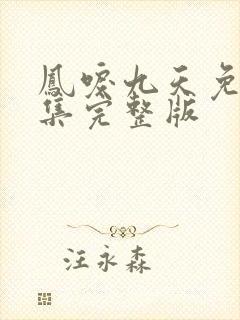 鳳唳九天免
集完整版
汪永森